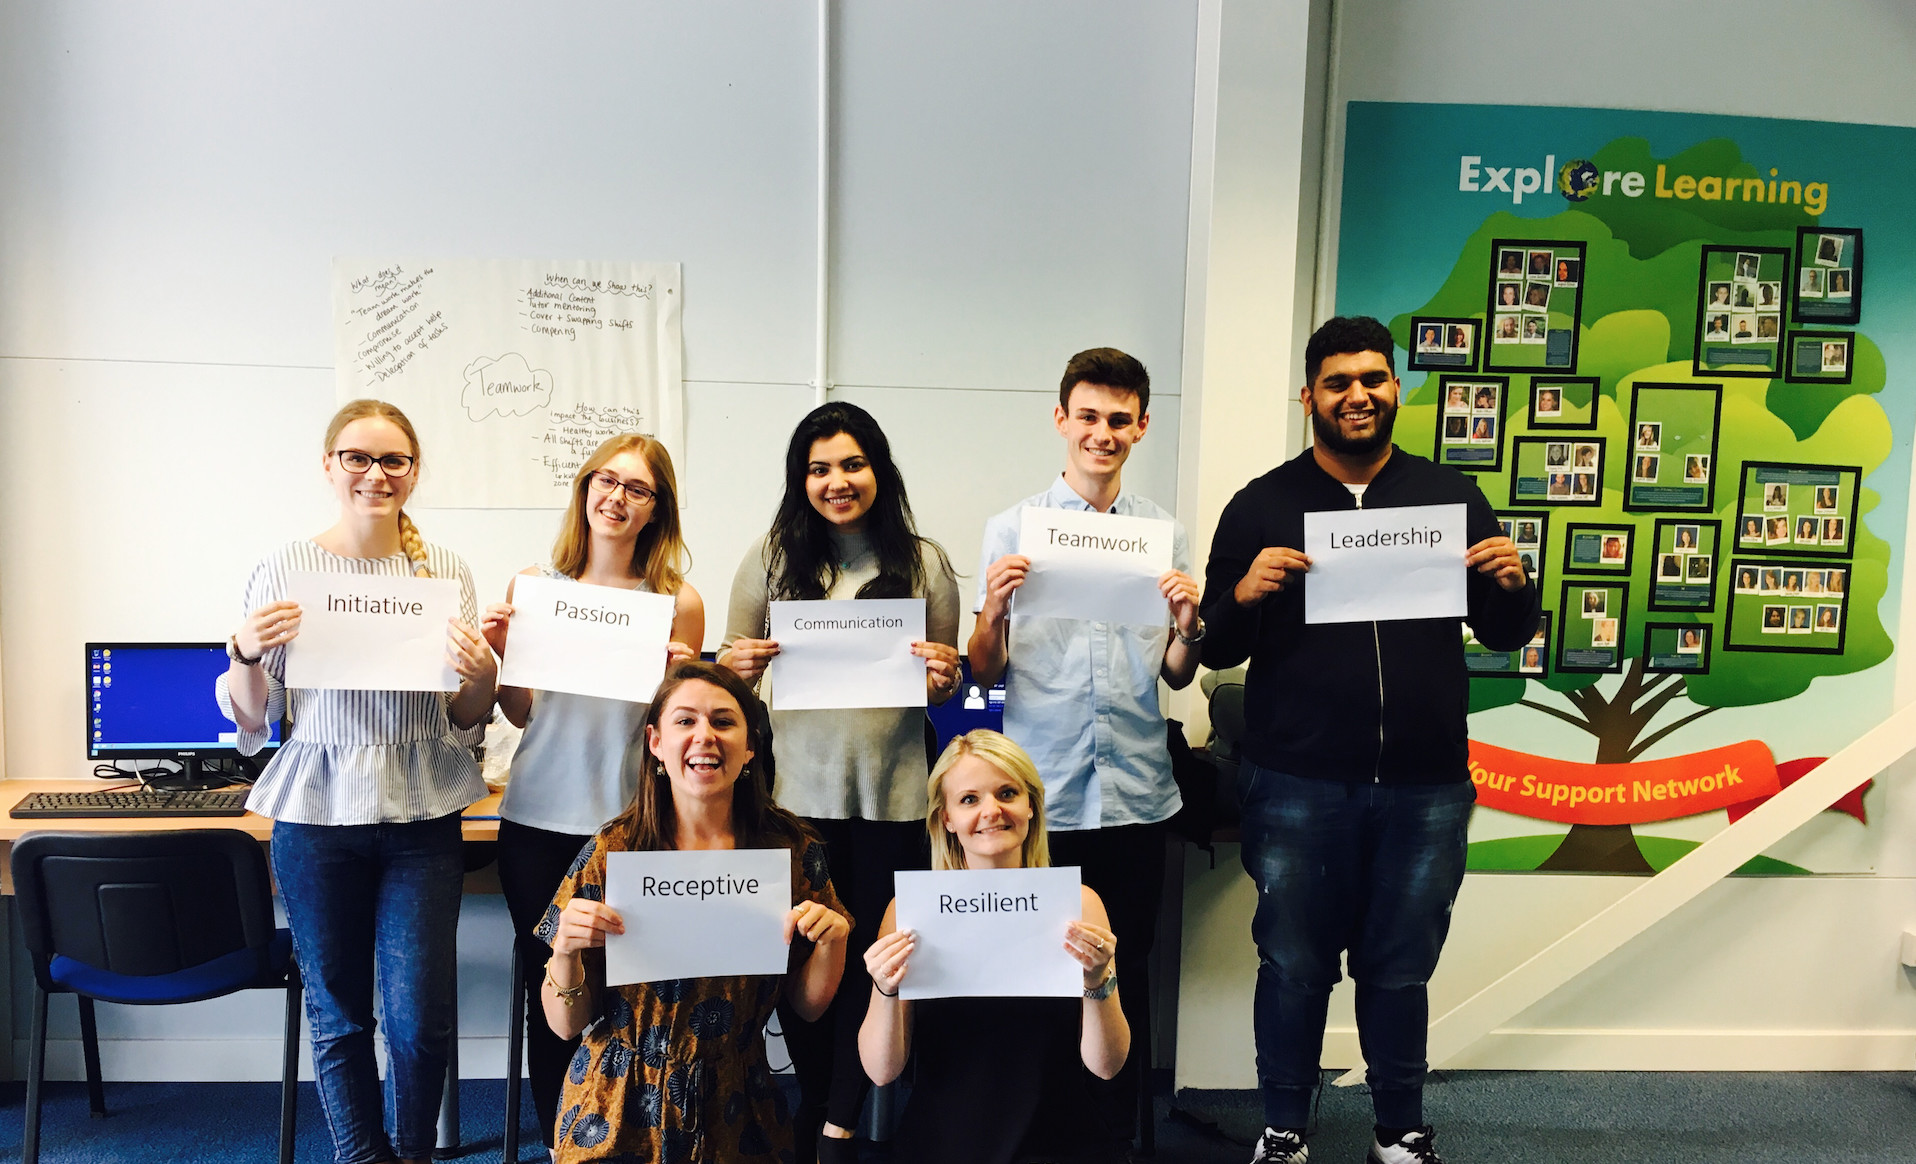 What does it
mean?
- "Team work makes the
dream work"
- Communication
- Compromise
- Willing to accept help
- Delegation of tasks
When can we show this?
- Additional Content
- Tutor mentoring
- Cover + Swapping Shifts
- Compering
Teamwork
How can this
impact the business?
- Healthy work
- All Shifts are
- Efficient
zone
Explore Learning
Initiative
Passion
Communication
Teamwork
Leadership
Receptive
Resilient
Your Support Network
PHILIPS